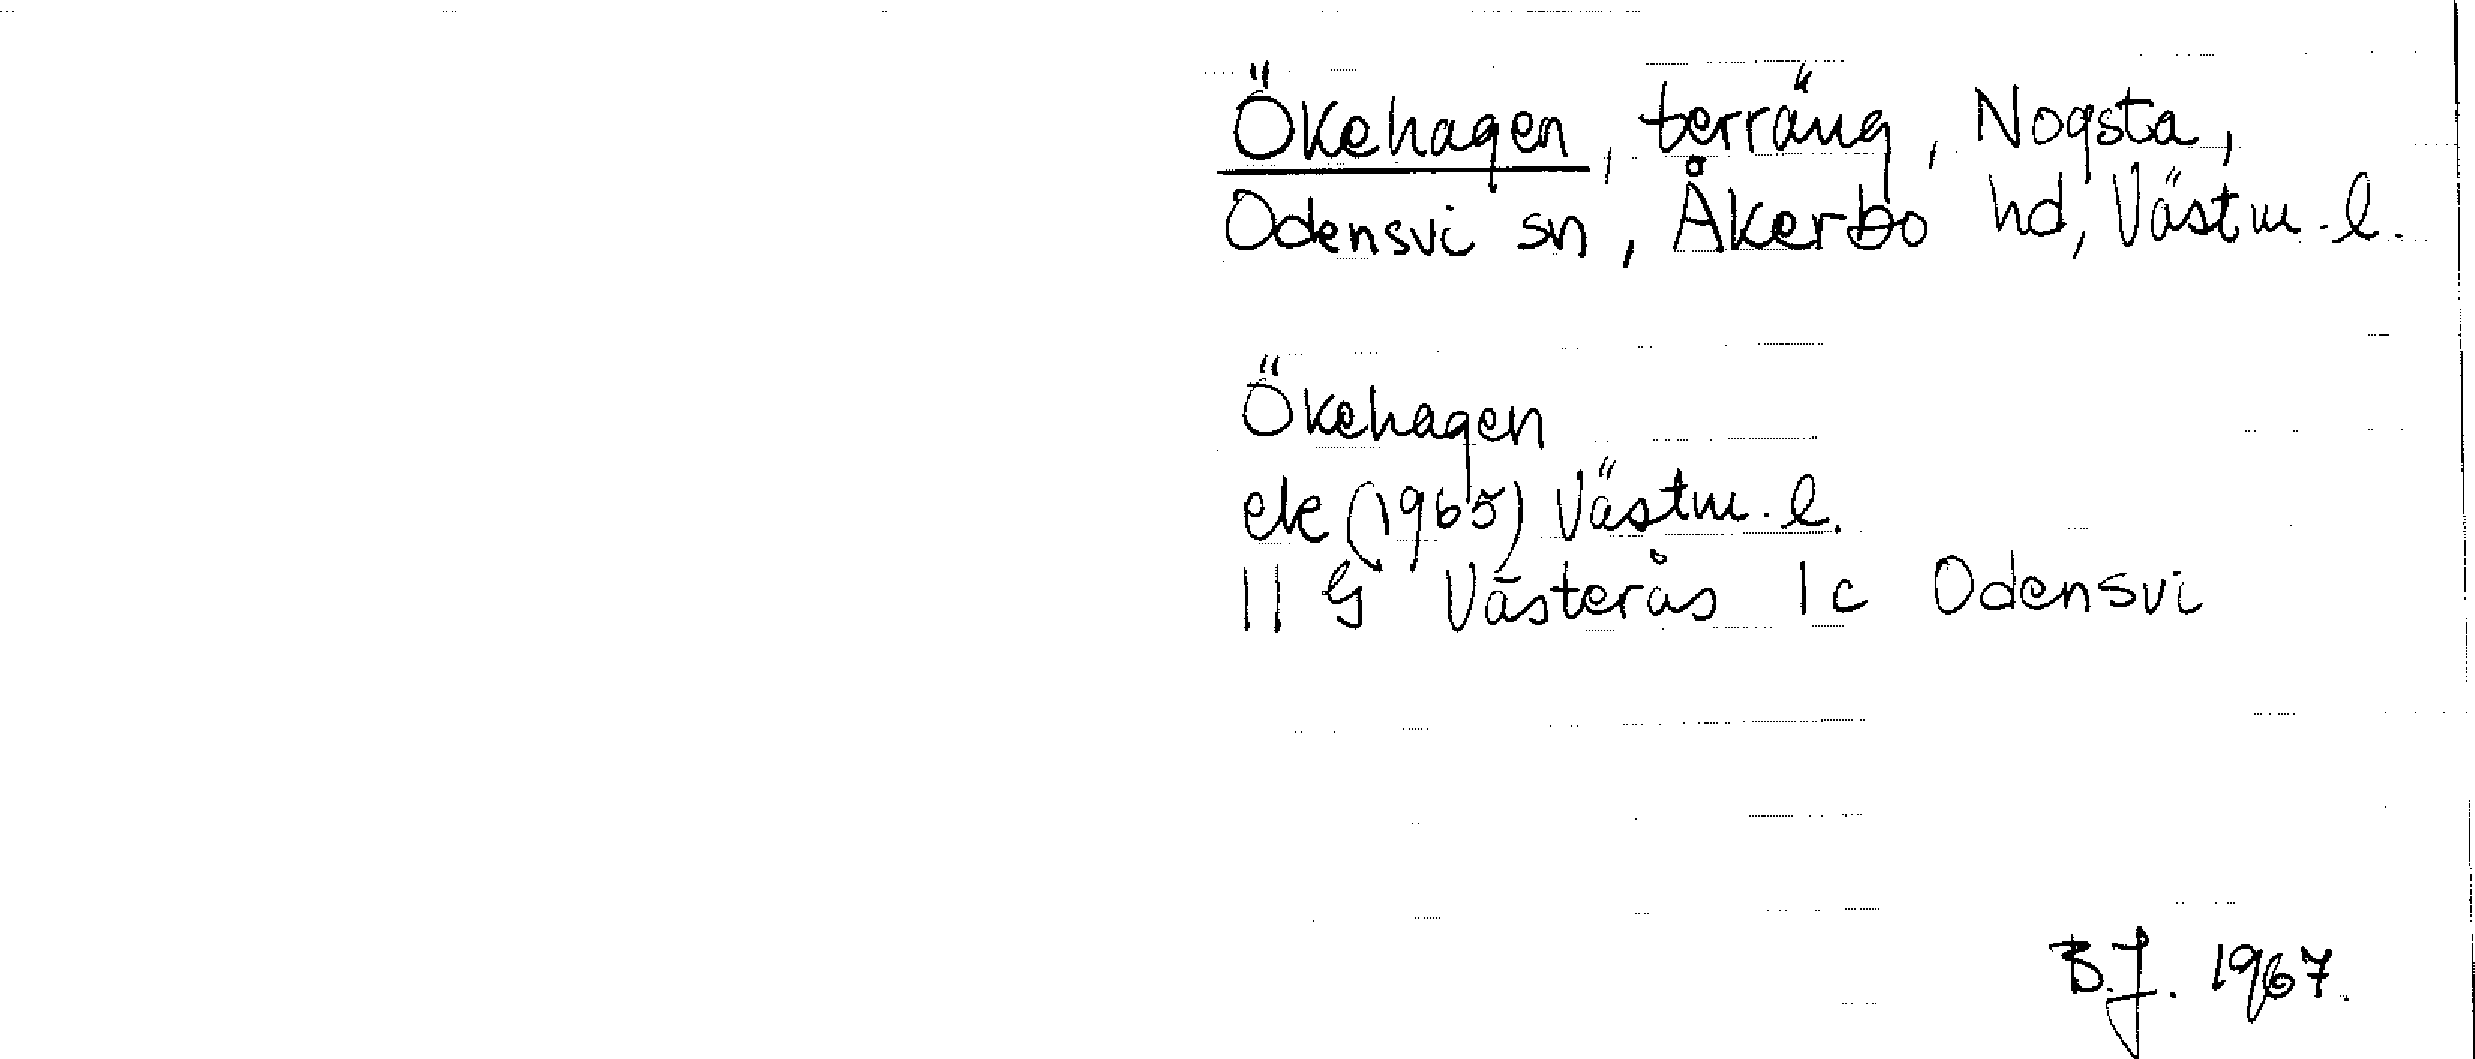 Ökehagen, terräng, Nogsta,
Odensvi sn, Åkerbo hd, Västm. l.
Ökehagen
ek (1965) Västm. l.
11 G Västerås 1c Odensvi
B.J. 1967.